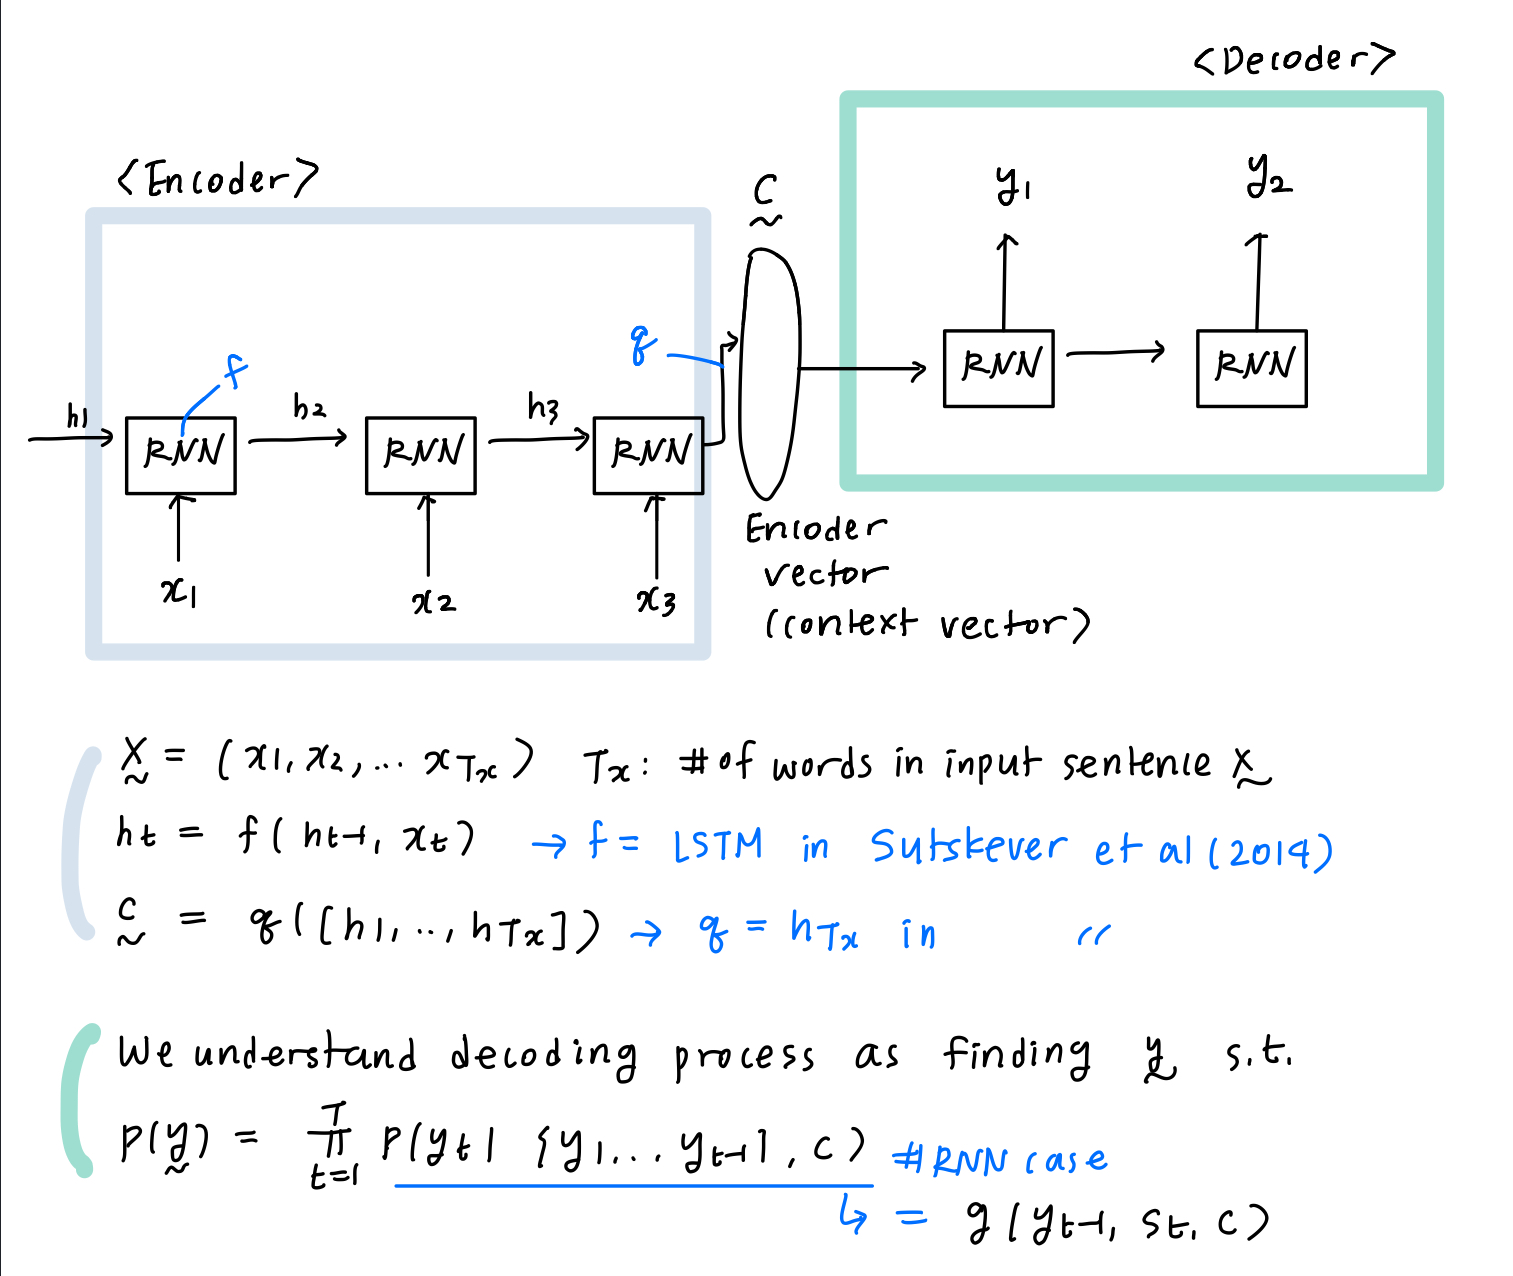 <Decoder>
<Encoder>
C
y1
y2
q
f
h1
h2
h3
RNN
RNN
RNN
RNN
RNN
x1
x2
x3
Encoder
vector
(context vector)
X = (x1, x2, ... xTx) Tx: # of words in input sentence X
ht = f(ht-1, xt) → f = LSTM in Sutskever et al (2014)
c = q([h1, .., hTx]) → q = hTx in "
We understand decoding process as finding y s.t.
p(y) = T π t=1 P(yt| {y1... yt-1}, c) #RNN case
↳ = g(yt-1, st, c)